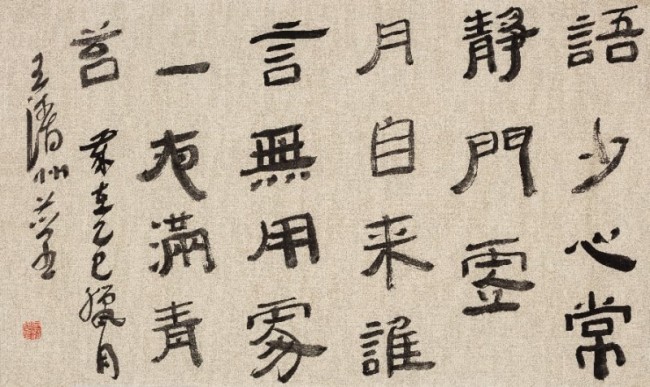 語少心常
靜門虛
月自来誰
言無用處
一夜滿青
苔 歲在乙巳臘月
王清州書